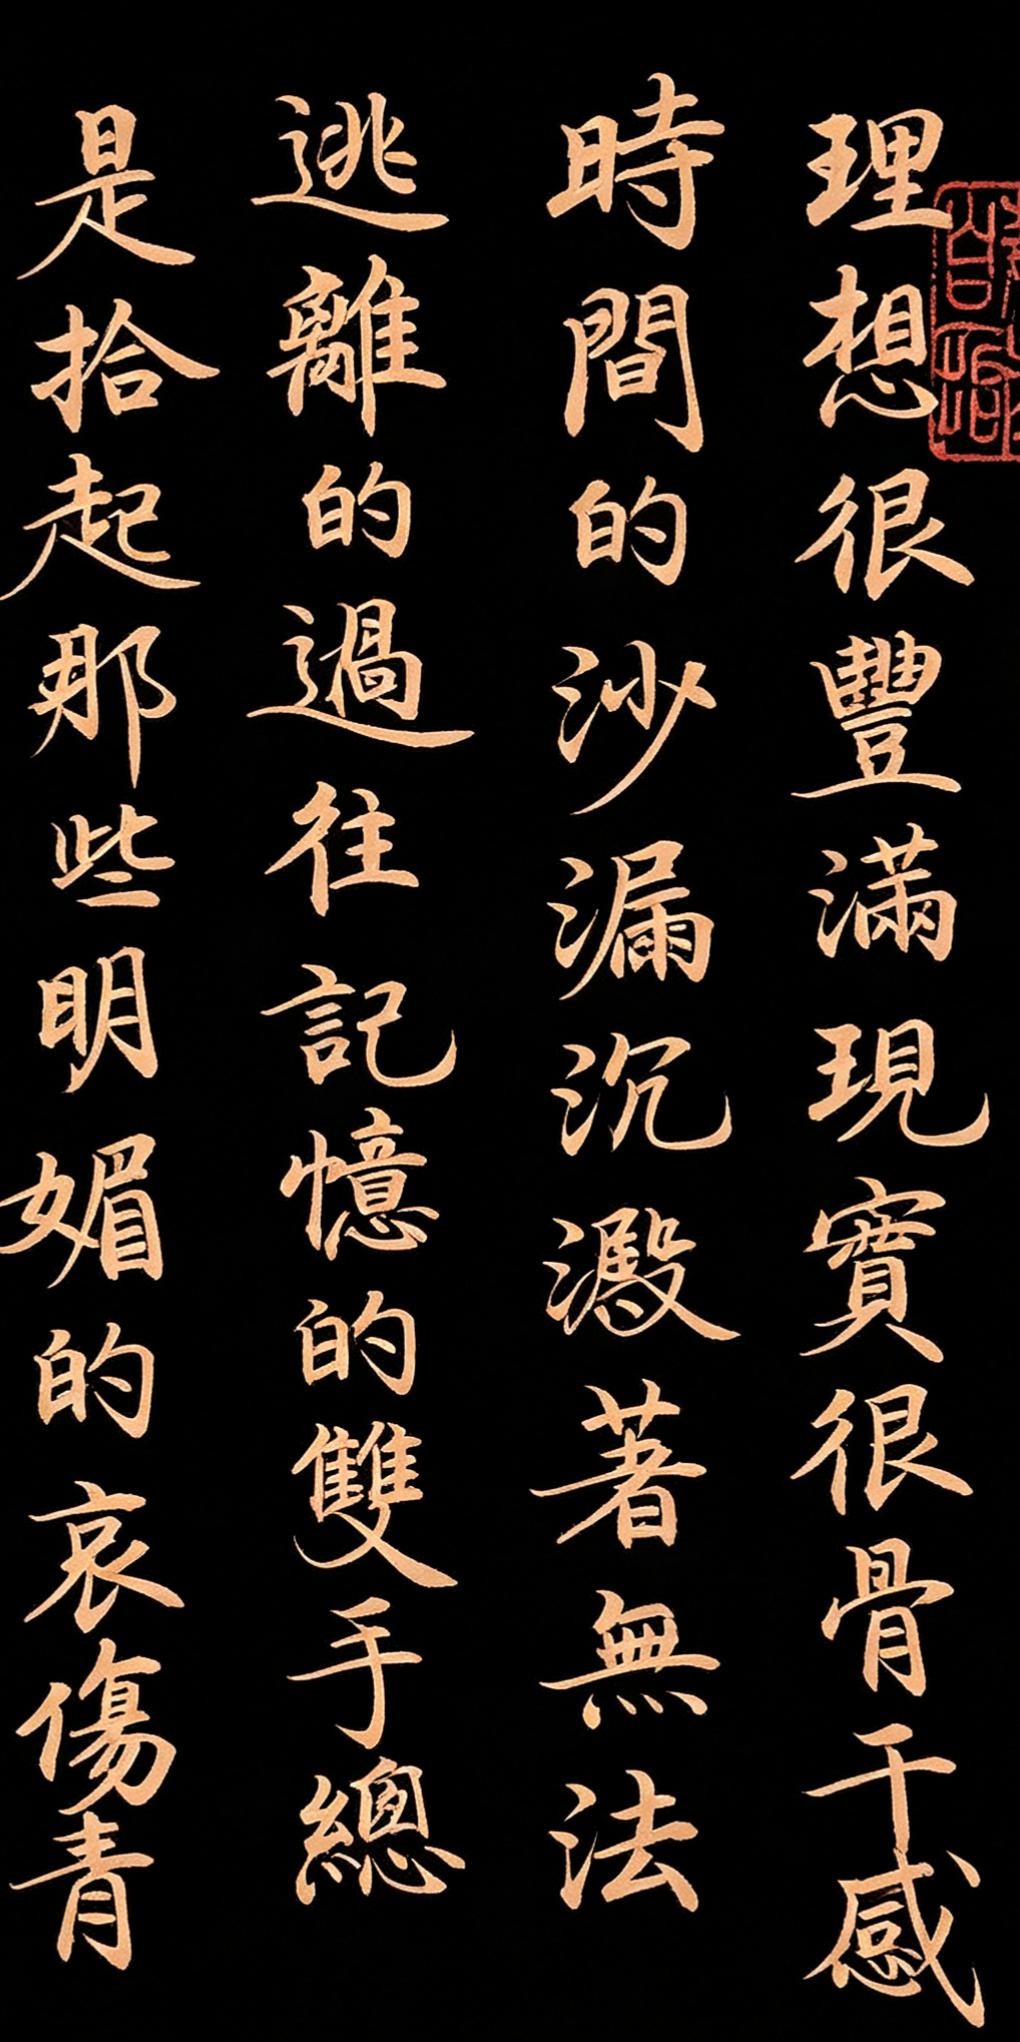 理想很豐滿現實很骨干感
時間的沙漏沉澱著無法
逃離的過往記憶的雙手總
是拾起那些明媚的哀傷青